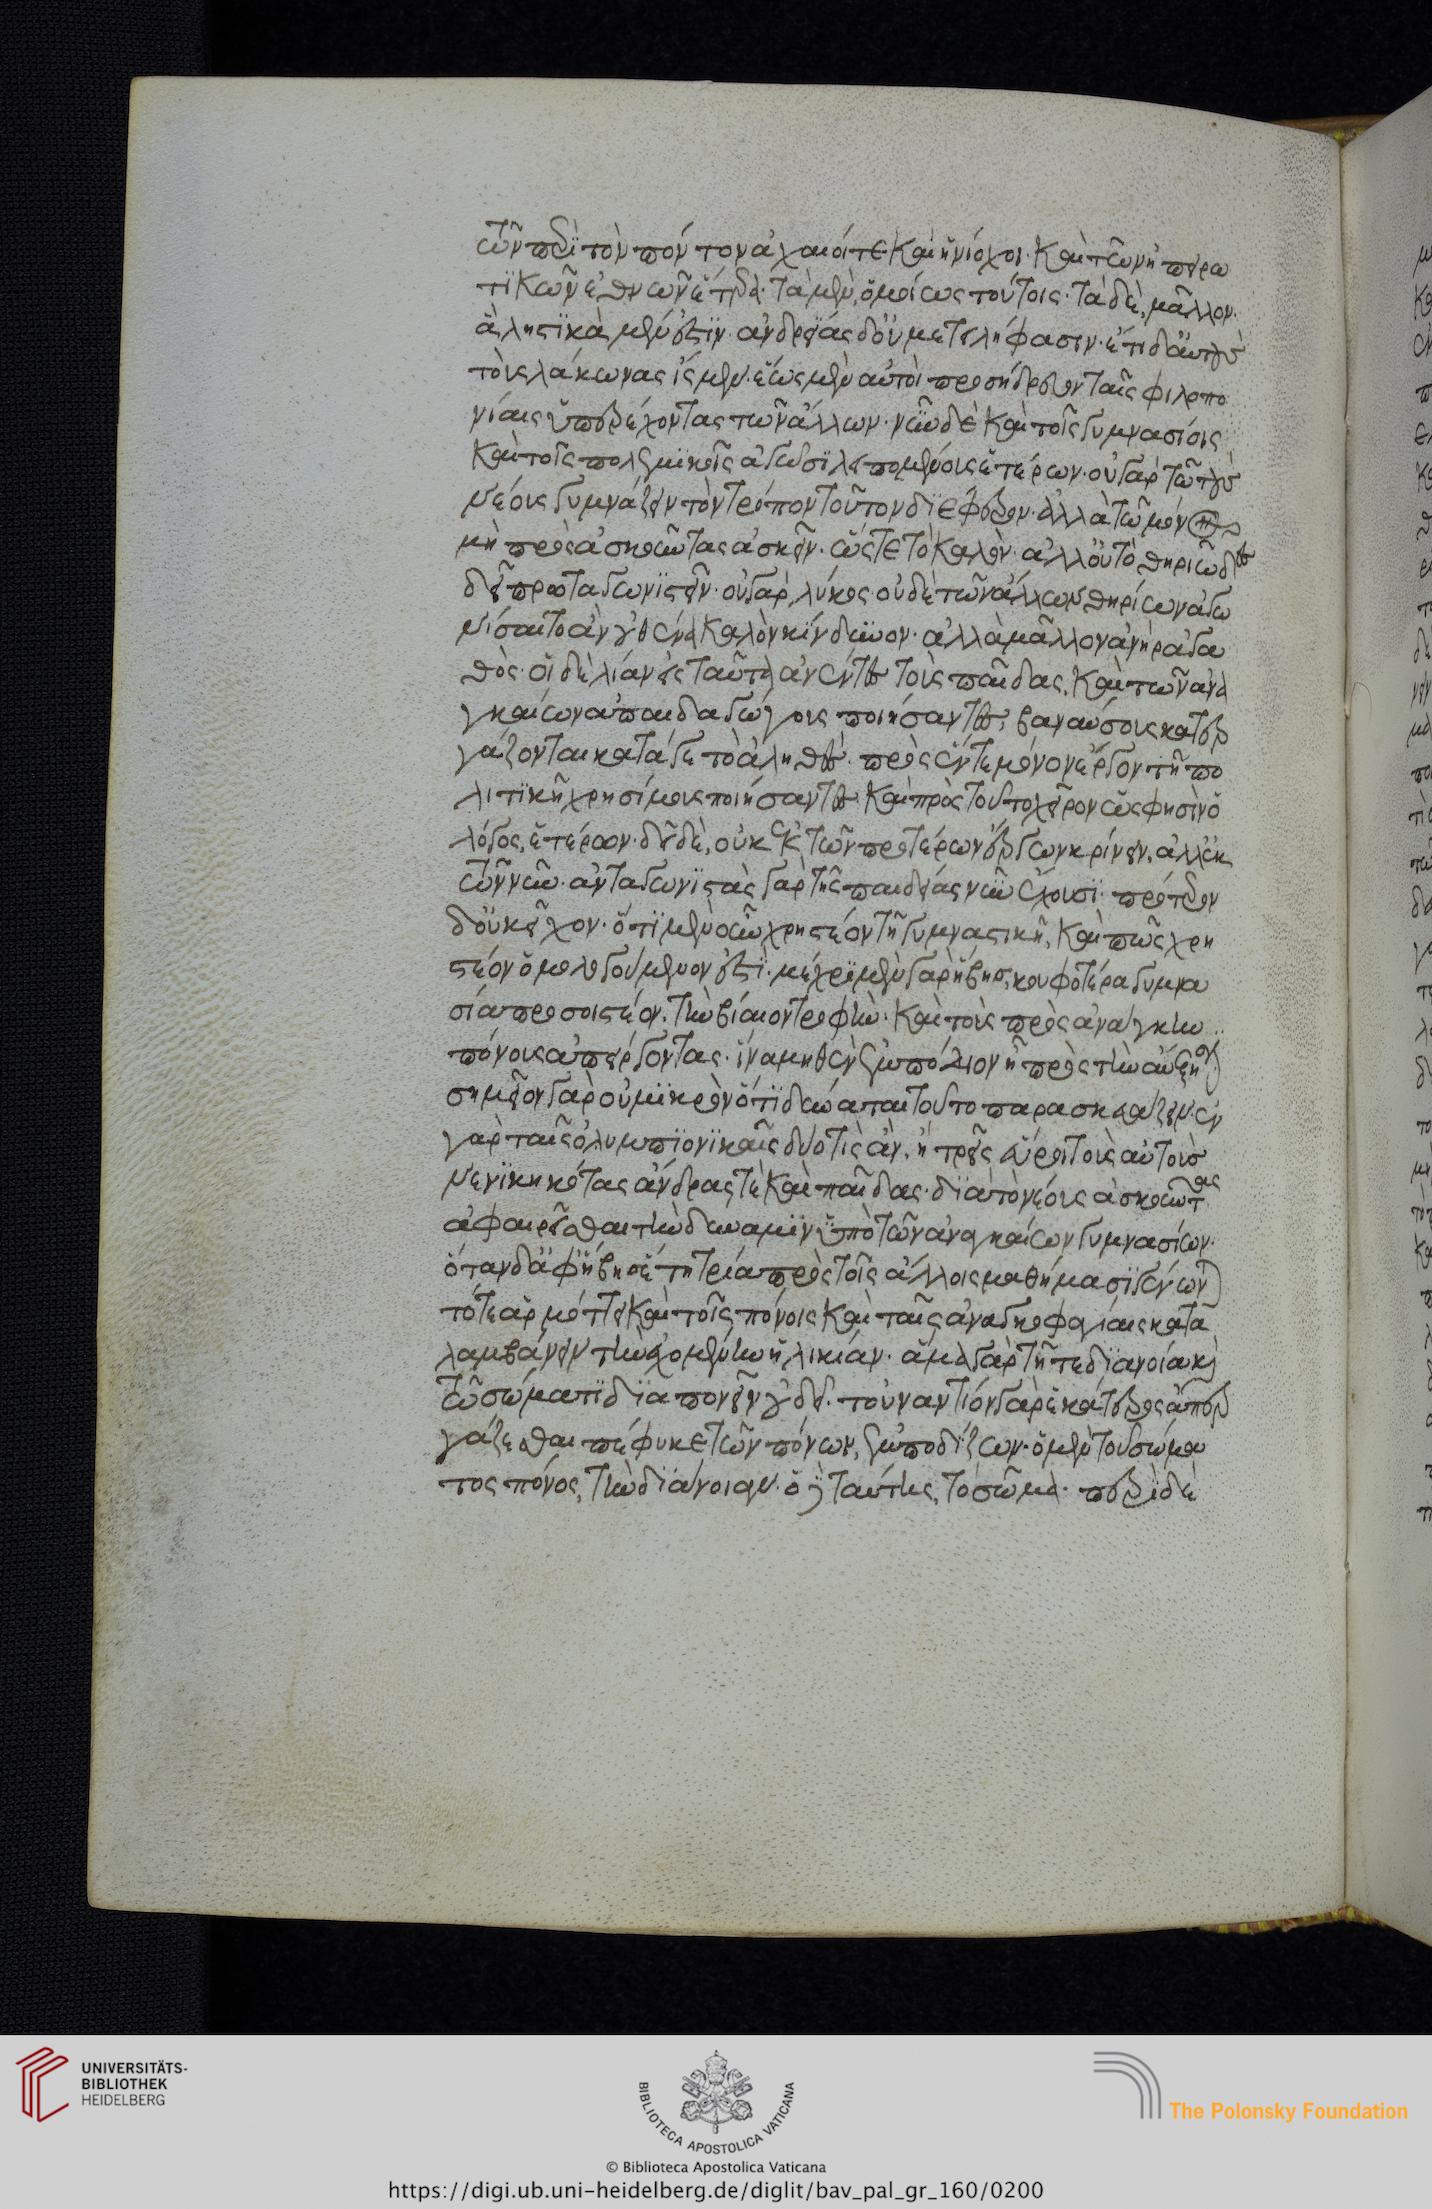 τῶν περὶ τὸν πόντον ἀχαιοί τε καὶ ἡνίοχοι· καὶ τῶν ἠπειρω
τικῶν ἐθνῶν ἕτερα· τὰ μὲν, ὁμοίως τούτοις· τὰ δὲ, μᾶλλον·
ἃ λῃστικὰ μέν ἐστιν· ἀνδρείας δ' οὐ μετειλήφασιν· ἔτι δ' αὐτοὺς
τοὺς λάκωνας ἴσμεν· ἕως μὲν αὐτοὶ προσήδρευον ταῖς φιλοπο
νίαις ὑπερέχοντας τῶν ἄλλων· νῦν δὲ καὶ τοῖς γυμνασίοις
καὶ τοῖς πολεμικοῖς ἀγῶσι λειπομένοις ἑτέρων· οὐ γὰρ τῶ τοὺς
νέους γυμνάζειν τὸν τρόπον τοῦτον διέφερον· ἀλλὰ τῶ μόνον
μὴ πρὸς ἀσκοῦντας ἀσκεῖν· ὥστε τὸ καλὸν ἀλλ' οὐ τὸ θηριῶδες
δεῖ πρωταγωνιστεῖν· οὐ γὰρ, λύκος οὐδὲ τῶν ἄλλων θηρίων ἀγω
νίσαιτο ἂν οὐθένα καλὸν κίνδυνον· ἀλλὰ μᾶλλον ἀνὴρ ἀγα
θὸς· οἱ δὲ λίαν εἰς ταῦτα ἀνέντες τοὺς παῖδας, καὶ τῶν ἀνα
γκαίων ἀπαιδαγώγους ποιήσαντες, βαναύσους κατερ
γάζονται κατά γε τὸ ἀληθές· πρὸς ἕν τε μόνον ἔργον τῆ πο
λιτικῆ χρησίμους ποιήσαντες· καὶ πρὸς τοῦτο χεῖρον ὥς φησὶν ὁ
λόγος, ἑτέρων· δεῖ δὲ, οὐκ ἐκ τῶν προτέρων ἔργων κρίνειν, ἀλλ' ἐκ
τῶν νῦν· ἀνταγωνιστὰς γὰρ τῆς παιδείας νῦν ἔχουσι· πρότερον
δ' οὐκ εἶχον· ὅτι μὲν οὖν χρηστέον τῆ γυμναστικῆ, καὶ πῶς χρη
στέον ὁμολογούμενον ἐστὶ· μέχρι μὲν γὰρ ἥβης, κουφότερα γυμνα
σία προσοιστέον· τὴν βίαιον τροφὴν· καὶ τοὺς πρὸς ἀνάγκην
πόνους ἀπείργοντας· ἵνα μηθὲν ἐμπόδιον ἦ πρὸς τὴν αὔξησιν
σημεῖον γὰρ οὐ μικρὸν ὅτι δύναται τοῦτο παρασκευάζειν· ἐν
γὰρ ταῖς ὀλυμπιονίκαις δύο τὶς ἂν, ἢ τρεῖς εὕροι τοὺς αὐτοὺς
νενικηκότας ἄνδρας τὲ καὶ παῖδας· διὰ τὸ νέους ἀσκοῦντας
ἀφαιρεῖσθαι τὴν δύναμιν ὑπὸ τῶν ἀναγκαίων γυμνασίων·
ὅταν δ' ἀφ' ἥβης ἔτη τρία πρὸς τοῖς ἄλλοις μαθήμασι γένωνται
τότε ἁρμόττει καὶ τοῖς πόνοις καὶ ταῖς ἀναγκοφαγίαις κατα
λαμβάνειν τὴν ἐχομένην ἡλικίαν· ἅμα γὰρ τῆ τε διανοία καὶ
τῶ σώματι διαπονεῖν οὐ δεῖ· τοὐναντίον γὰρ ἑκάτερος ἀπερ
γάζεσθαι πέφυκε τῶν πόνων, ἐμποδίζων· ὁ μὲν τοῦ σώμα
τος πόνος, τὴν διάνοιαν· ὁ δὲ ταύτης, τὸ σῶμα· περὶ δὲ
UNIVERSITÄTS-
BIBLIOTHEK
HEIDELBERG
BIBLIOTECA APOSTOLICA VATICANA
The Polonsky Foundation
© Biblioteca Apostolica Vaticana
https://digi.ub.uni-heidelberg.de/diglit/bav_pal_gr_160/0200